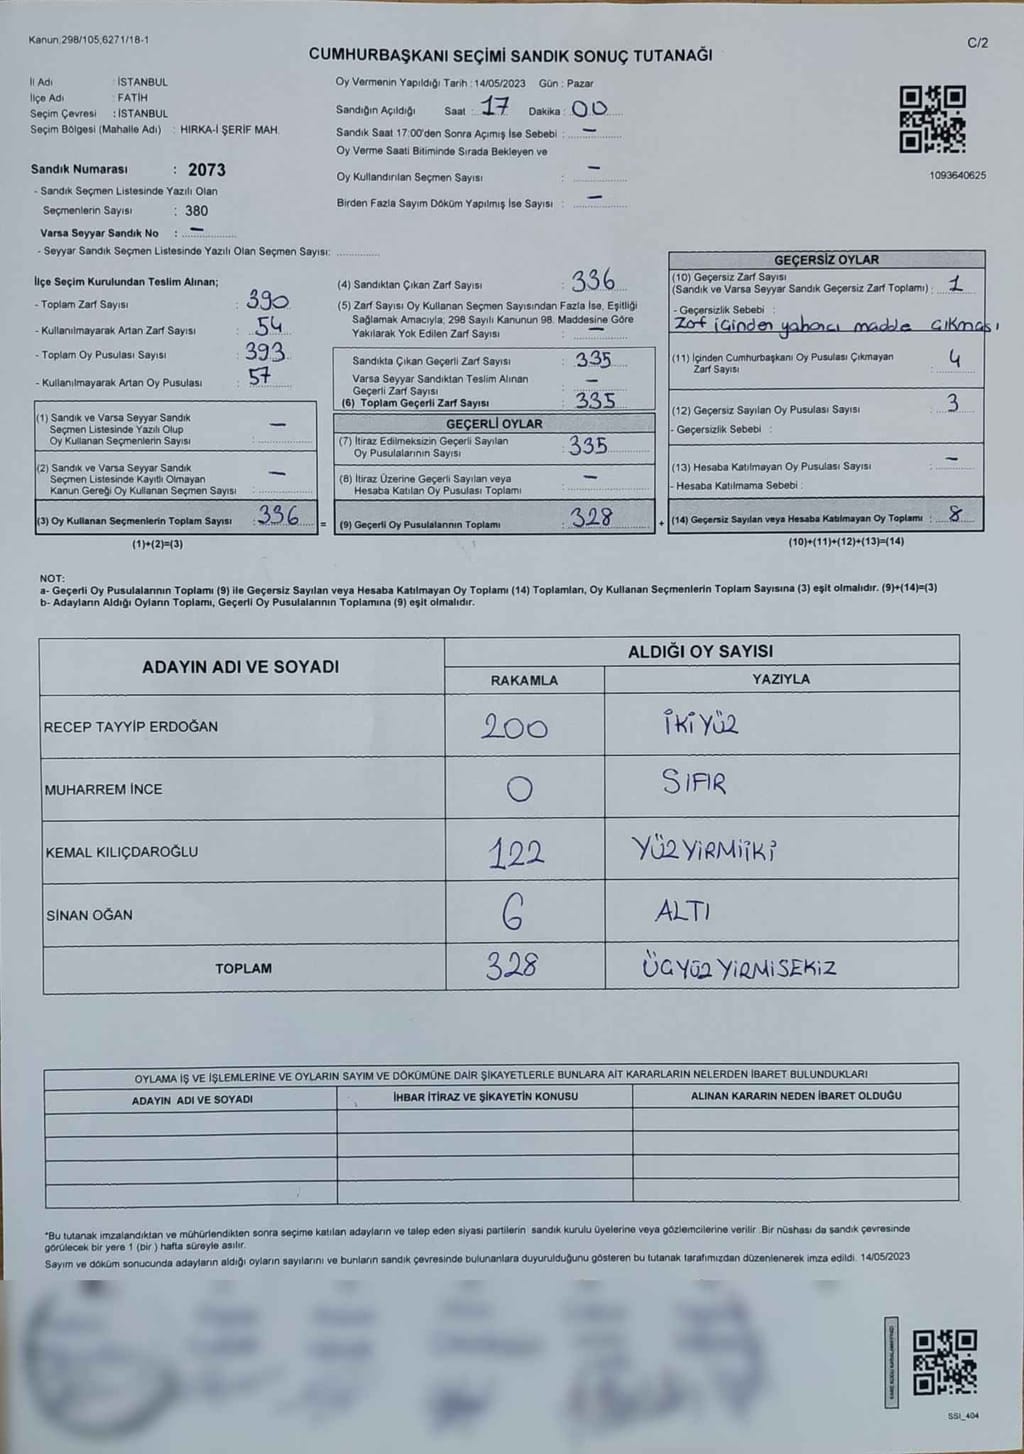 Kanun:298/105,6271/18-1
C/2
CUMHURBAŞKANI SEÇİMİ SANDIK SONUÇ TUTANAĞI
İl Adı : İSTANBUL
İlçe Adı : FATİH
Seçim Çevresi : İSTANBUL
Seçim Bölgesi (Mahalle Adı) : HIRKA-İ ŞERİF MAH.
Oy Vermenin Yapıldığı Tarih : 14/05/2023 Gün : Pazar
Sandığın Açıldığı Saat : 17 Dakika : 00
Sandık Saat 17:00'den Sonra Açımış İse Sebebi : —
Oy Verme Saati Bitiminde Sırada Bekleyen ve
Oy Kullandırılan Seçmen Sayısı : —
Birden Fazla Sayım Döküm Yapılmış İse Sayısı : —
1093640625
Sandık Numarası : 2073
- Sandık Seçmen Listesinde Yazılı Olan
Seçmenlerin Sayısı : 380
Varsa Seyyar Sandık No : —
- Seyyar Sandık Seçmen Listesinde Yazılı Olan Seçmen Sayısı:
İlçe Seçim Kurulundan Teslim Alınan;
- Toplam Zarf Sayısı : 390
- Kullanılmayarak Artan Zarf Sayısı : 54
- Toplam Oy Pusulası Sayısı : 393
- Kullanılmayarak Artan Oy Pusulası : 57
(1) Sandık ve Varsa Seyyar Sandık
Seçmen Listesinde Yazılı Olup
Oy Kullanan Seçmenlerin Sayısı : —
(2) Sandık ve Varsa Seyyar Sandık
Seçmen Listesinde Kayıtlı Olmayan
Kanun Gereği Oy Kullanan Seçmen Sayısı : —
(3) Oy Kullanan Seçmenlerin Toplam Sayısı : 336 =
(1)+(2)=(3)
(4) Sandıktan Çıkan Zarf Sayısı : 336
(5) Zarf Sayısı Oy Kullanan Seçmen Sayısından Fazla İse, Eşitliği
Sağlamak Amacıyla; 298 Sayılı Kanunun 98. Maddesine Göre
Yakılarak Yok Edilen Zarf Sayısı : —
Sandıkta Çıkan Geçerli Zarf Sayısı : 335
Varsa Seyyar Sandıktan Teslim Alınan
Geçerli Zarf Sayısı : —
(6) Toplam Geçerli Zarf Sayısı : 335
GEÇERLİ OYLAR
(7) İtiraz Edilmeksizin Geçerli Sayılan
Oy Pusulalarının Sayısı : 335
(8) İtiraz Üzerine Geçerli Sayılan veya
Hesaba Katılan Oy Pusulası Toplamı : —
(9) Geçerli Oy Pusulalarının Toplamı : 328 +
GEÇERSİZ OYLAR
(10) Geçersiz Zarf Sayısı
(Sandık ve Varsa Seyyar Sandık Geçersiz Zarf Toplamı) : 1
- Geçersizlik Sebebi :
Zarf içinden yabancı madde çıkması
(11) İçinden Cumhurbaşkanı Oy Pusulası Çıkmayan
Zarf Sayısı : 4
(12) Geçersiz Sayılan Oy Pusulası Sayısı : 3
- Geçersizlik Sebebi :
(13) Hesaba Katılmayan Oy Pusulası Sayısı : —
- Hesaba Katılmama Sebebi :
(14) Geçersiz Sayılan veya Hesaba Katılmayan Oy Toplamı : 8
(10)+(11)+(12)+(13)=(14)
NOT:
a- Geçerli Oy Pusulalarının Toplamı (9) ile Geçersiz Sayılan veya Hesaba Katılmayan Oy Toplamı (14) Toplamları, Oy Kullanan Seçmenlerin Toplam Sayısına (3) eşit olmalıdır. (9)+(14)=(3)
b- Adayların Aldığı Oyların Toplamı, Geçerli Oy Pusulalarının Toplamına (9) eşit olmalıdır.
ADAYIN ADI VE SOYADI
ALDIĞI OY SAYISI
RAKAMLA YAZIYLA
RECEP TAYYİP ERDOĞAN 200 İKİYÜZ
MUHARREM İNCE 0 SIFIR
KEMAL KILIÇDAROĞLU 122 YÜZYİRMİİKİ
SİNAN OĞAN 6 ALTI
TOPLAM 328 ÜÇYÜZ YİRMİSEKİZ
OYLAMA İŞ VE İŞLEMLERİNE VE OYLARIN SAYIM VE DÖKÜMÜNE DAİR ŞİKAYETLERLE BUNLARA AİT KARARLARIN NELERDEN İBARET BULUNDUKLARI
ADAYIN ADI VE SOYADI İHBAR İTİRAZ VE ŞİKAYETİN KONUSU ALINAN KARARIN NEDEN İBARET OLDUĞU
*Bu tutanak imzalandıktan ve mühürlendikten sonra seçime katılan adayların ve talep eden siyasi partilerin sandık kurulu üyelerine veya gözlemcilerine verilir. Bir nüshası da sandık çevresinde
görülecek bir yere 1 (bir ) hafta süreyle asılır.
Sayım ve döküm sonucunda adayların aldığı oyların sayılarını ve bunların sandık çevresinde bulunanlara duyurulduğunu gösteren bu tutanak tarafımızdan düzenlenerek imza edildi. 14/05/2023
SSI_404